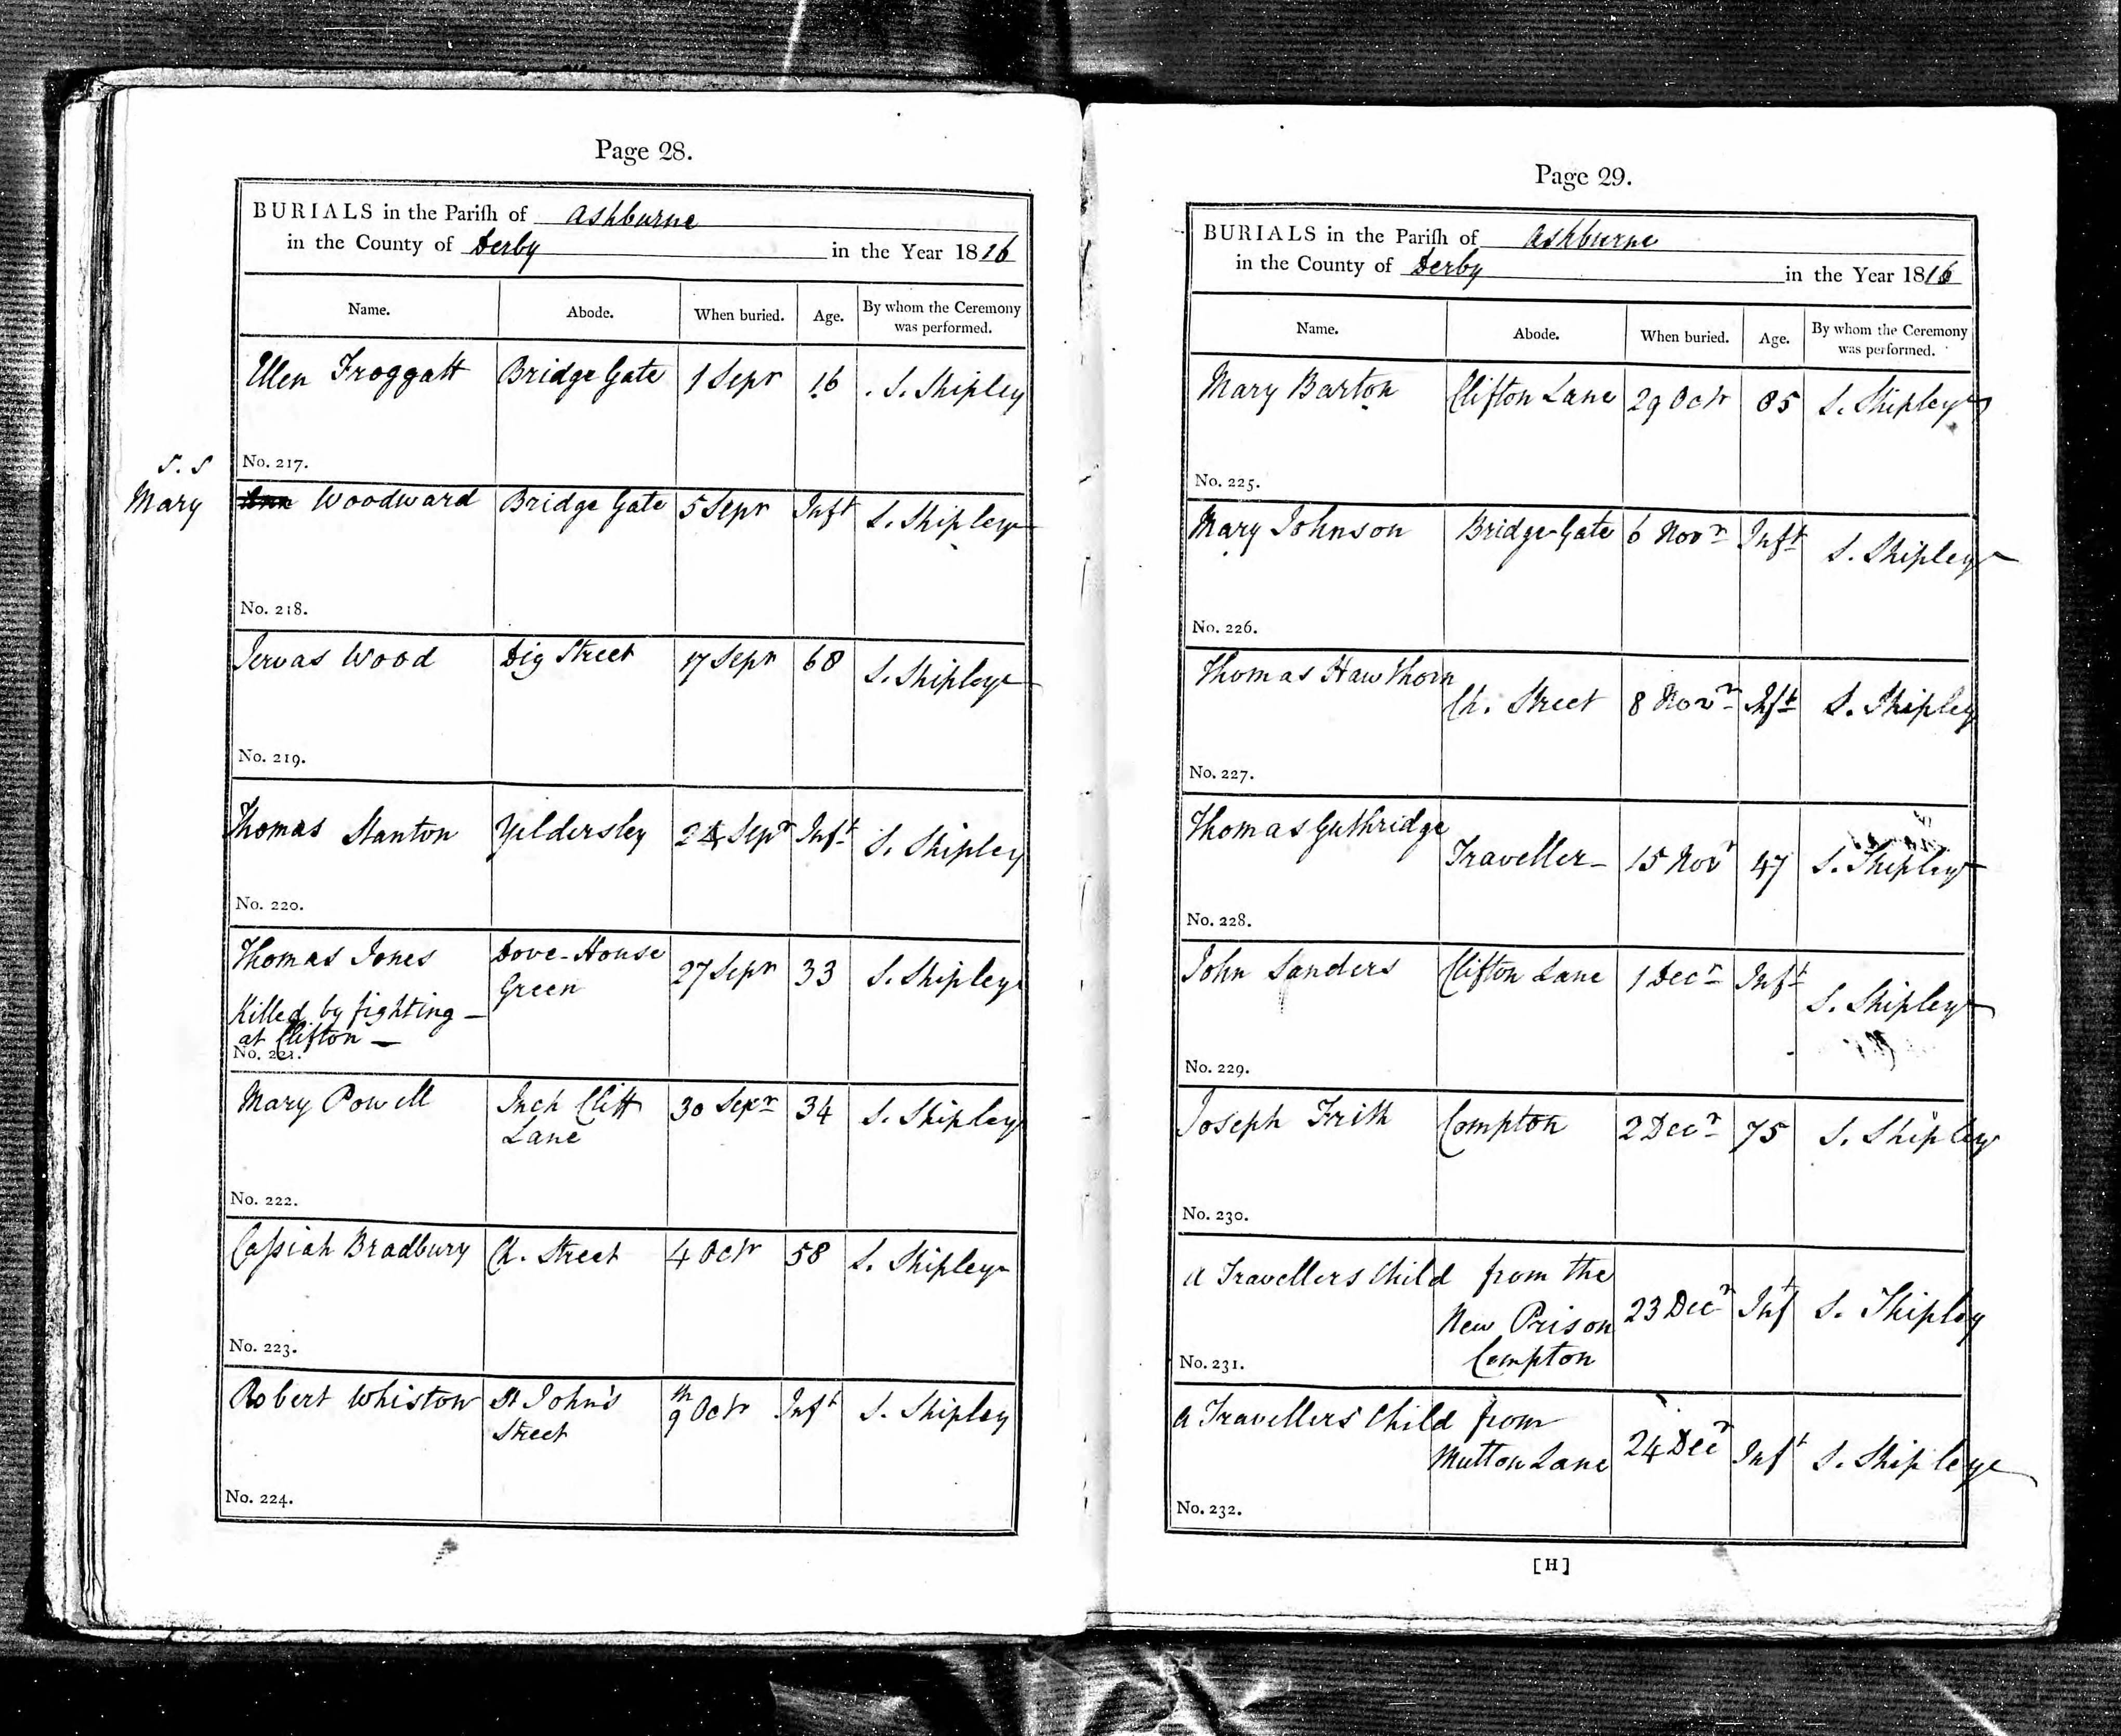 Page 28.
BURIALS in the Parish of Ashburne
in the County of Derby in the Year 1816
Name. Abode. When buried. Age. By whom the Ceremony was performed.
Ellen Froggatt Bridge Gate 1 Sepr 16 S. Shipley
No. 217.
S. S
Mary Ann Woodward Bridge Gate 5 Sepr Inft S. Shipley
No. 218.
Jervas Wood Dig Street 17 Sepr 68 S. Shipley
No. 219.
Thomas Stanton Yeldersley 24 Sepr Inft S. Shipley
No. 220.
Thomas Jones Dove-House Green 27 Sepr 33 S. Shipley
Killed by fighting
at Clifton
No. 221.
Mary Powell Inch Clift Lane 30 Sepr 34 S. Shipley
No. 222.
Cassiah Bradbury Ch. Street 4 Octr 58 S. Shipley
No. 223.
Robert Whiston St John's Street 9th Octr Inft S. Shipley
No. 224.
Page 29.
BURIALS in the Parish of Ashburne
in the County of Derby in the Year 1816
Name. Abode. When buried. Age. By whom the Ceremony was performed.
Mary Barton Clifton Lane 29 Octr 85 S. Shipley
No. 225.
Mary Johnson Bridge-Gate 6 Novr Inft S. Shipley
No. 226.
Thomas Hawthorn Ch. Street 8 Novr Inft S. Shipley
No. 227.
Thomas Guthridge Traveller 15 Novr 47 S. Shipley
No. 228.
John Sanders Clifton Lane 1 Decr Inft S. Shipley
No. 229.
Joseph Frith Compton 2 Decr 75 S. Shipley
No. 230.
A Travellers Child from the
New Prison 23 Decr Inft S. Shipley
Compton
No. 231.
A Travellers Child from
Mutton Lane 24 Decr Inft S. Shipley
No. 232.
[H]